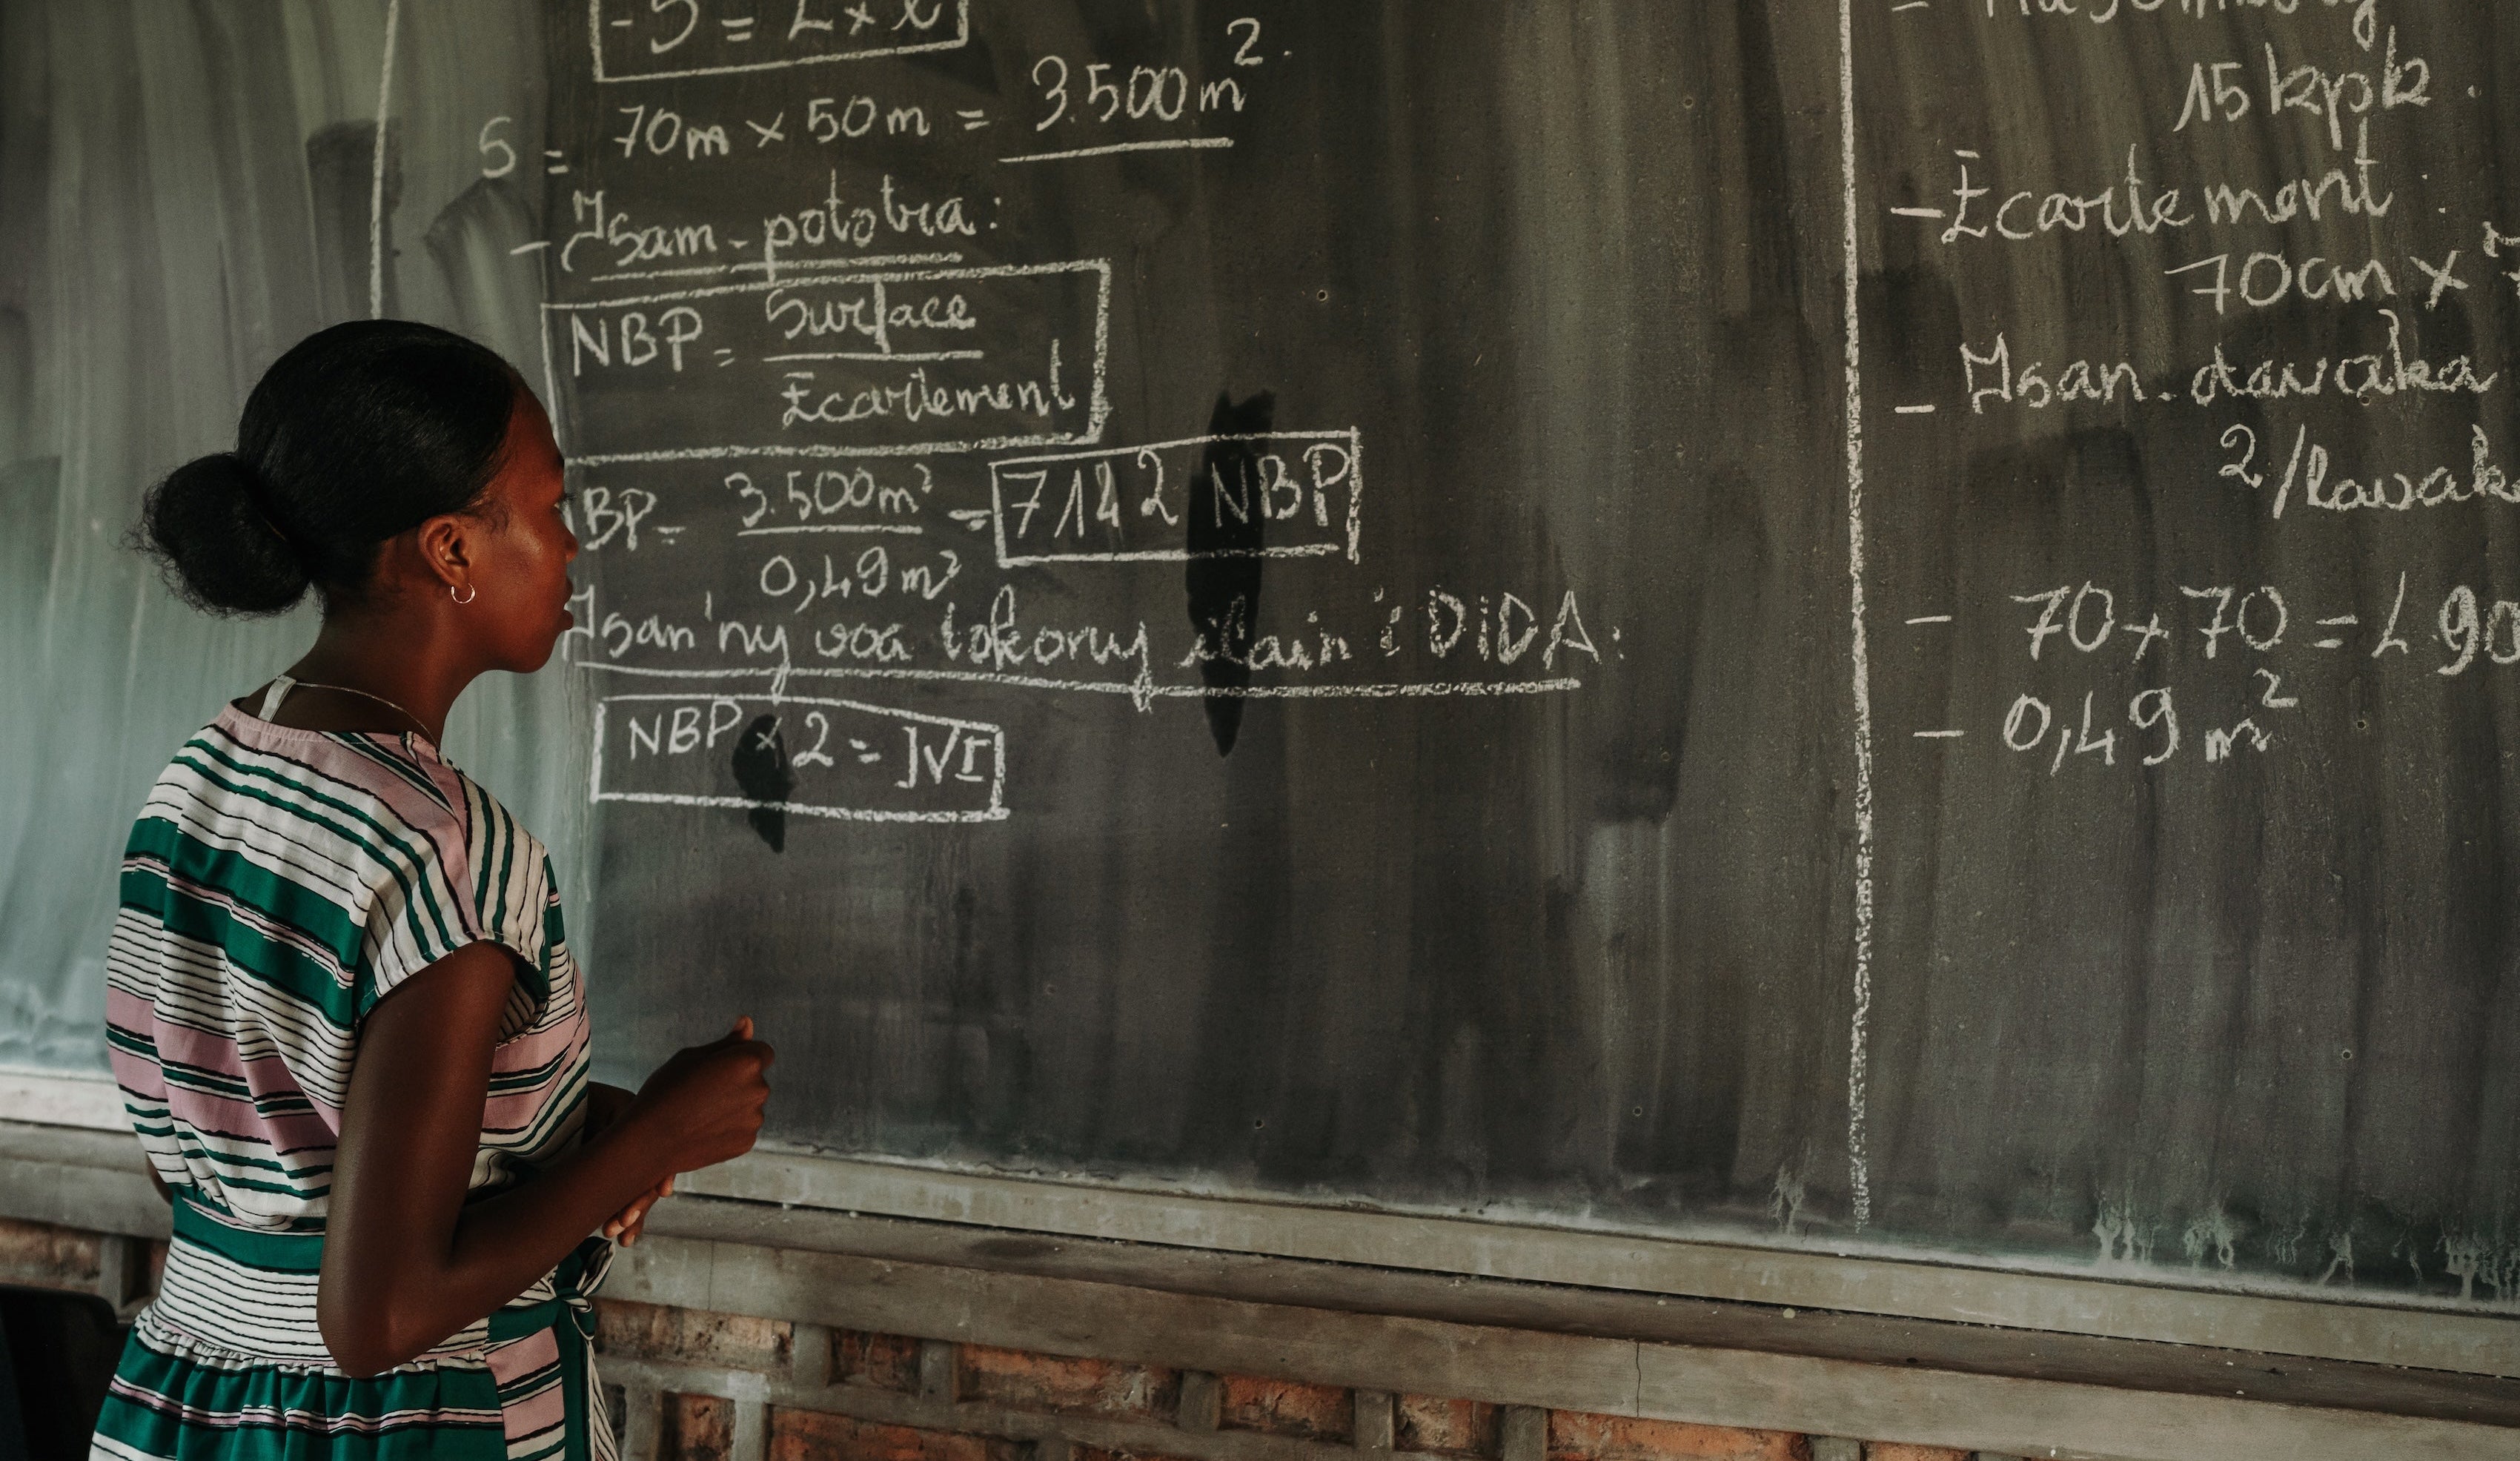 - S = L x l
S = 70m x 50m = 3.500 m².
- Isam-pototra:
NBP = Surface
Écartement
BP = 3.500m² = 7142 NBP
0,49m²
Isan'ny voa tokony ilain'i DiDA:
NBP x 2 = IVI
15 kpk.
- Écartement.
70cm x
- Isan-davaka
2/lavak
- 70 x 70 = 490
- 0,49 m²